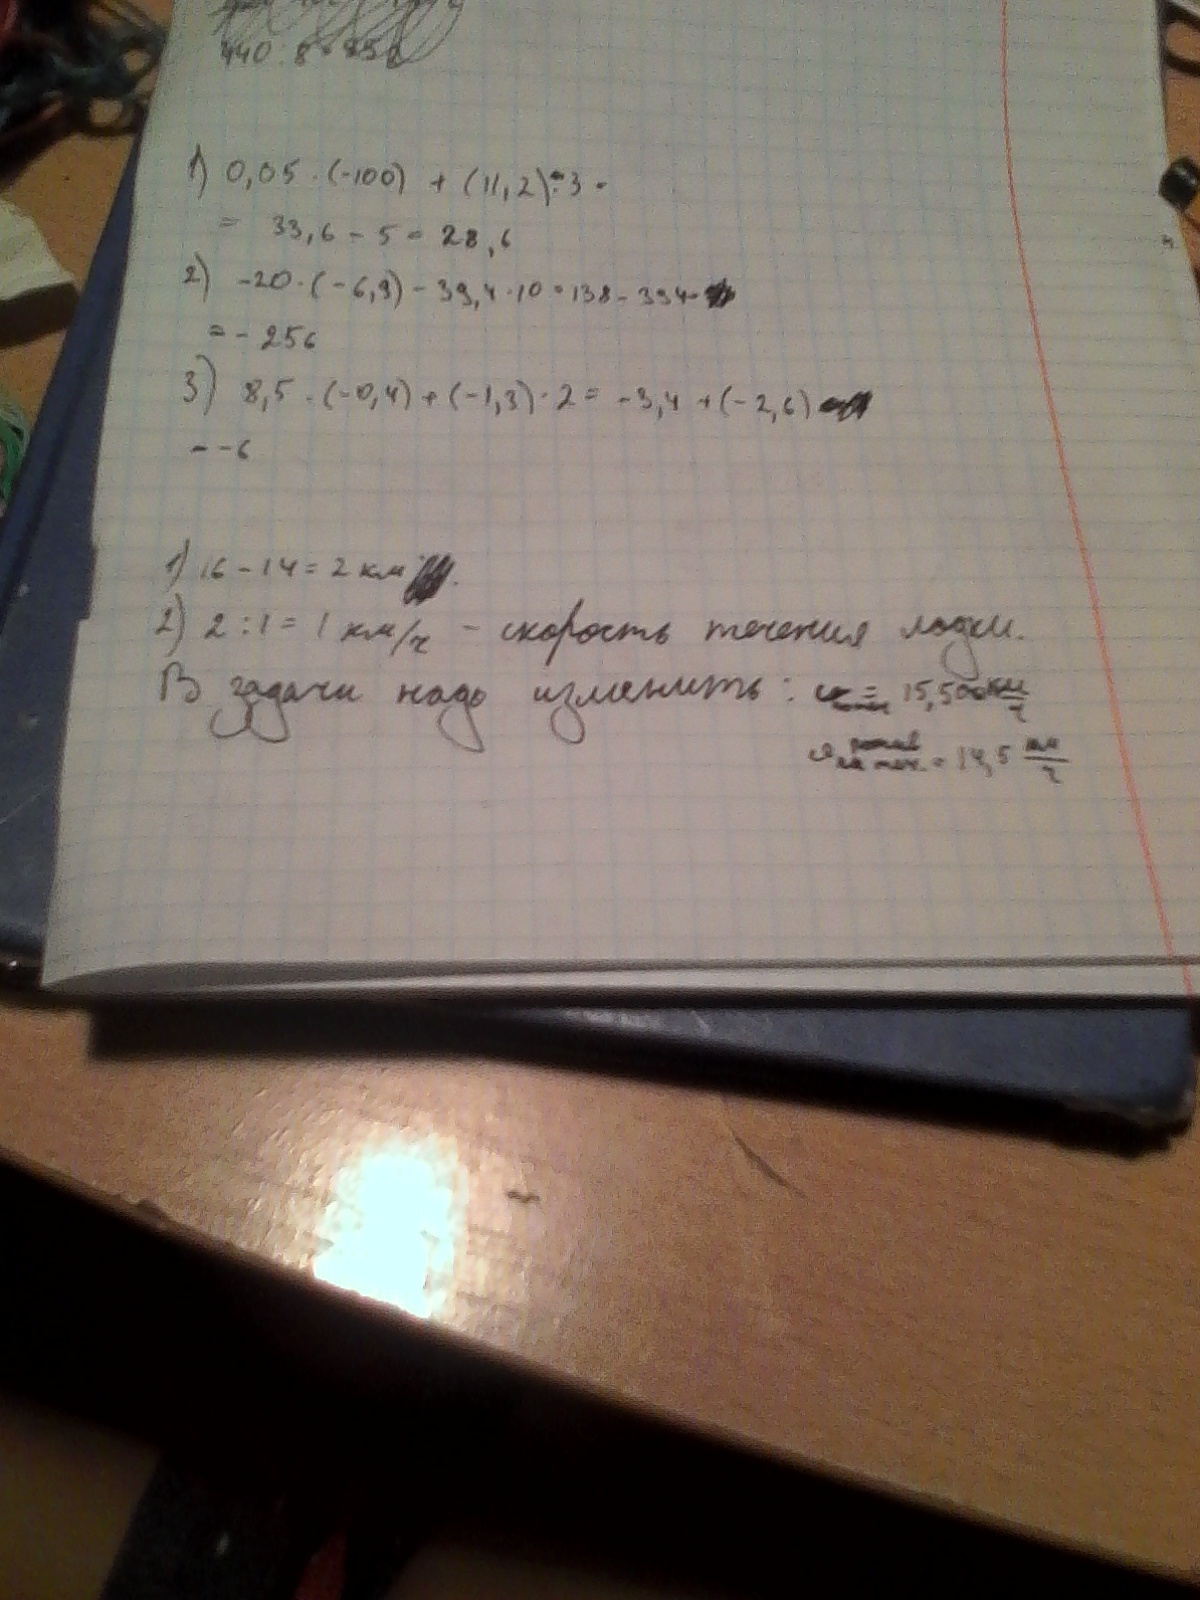 440 . 8
1) 0,05 · (-100) + (11,2) : 3 -
= 33,6 - 5 = 28,6
2) -20 · (-6,9) - 39,4 · 10 = 138 - 394 -
= - 256
3) 8,5 · (-0,4) + (-1,3) · 2 = -3,4 + (-2,6)
- -6
1) 16 - 14 = 2 км
2) 2 : 1 = 1 км/ч - скорость течения лодки.
В задачи надо изменить: = 15,5 км/ч
= 14,5 км/ч